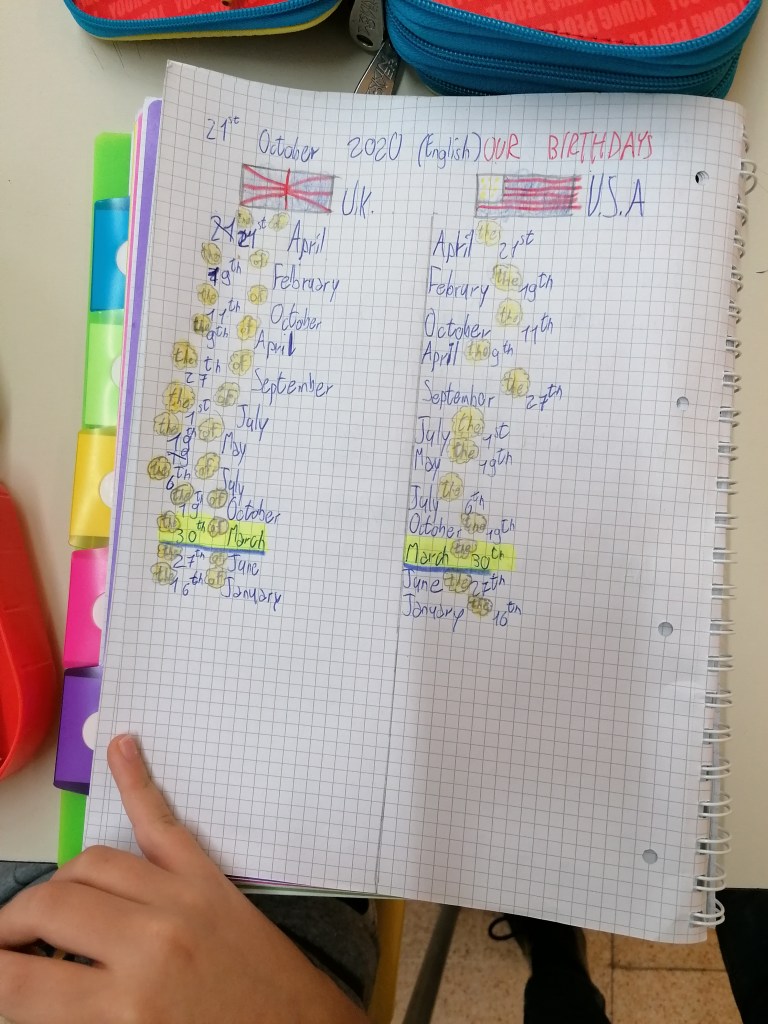 21st October 2020 (English) OUR BIRTHDAYS
U.K.
the 21st of April
the 19th of February
the 11th of October
the 9th of April
the 27th of September
the 1st of July
the 19th of May
the 6th of July
the 19th of October
the 30th of March
the 27th of June
the 16th of January
U.S.A
April the 21st
Februry the 19th
October the 11th
April the 9th
September the 27th
July the 1st
May the 19th
July the 6th
October the 19th
March the 30th
June the 27th
January the 16th